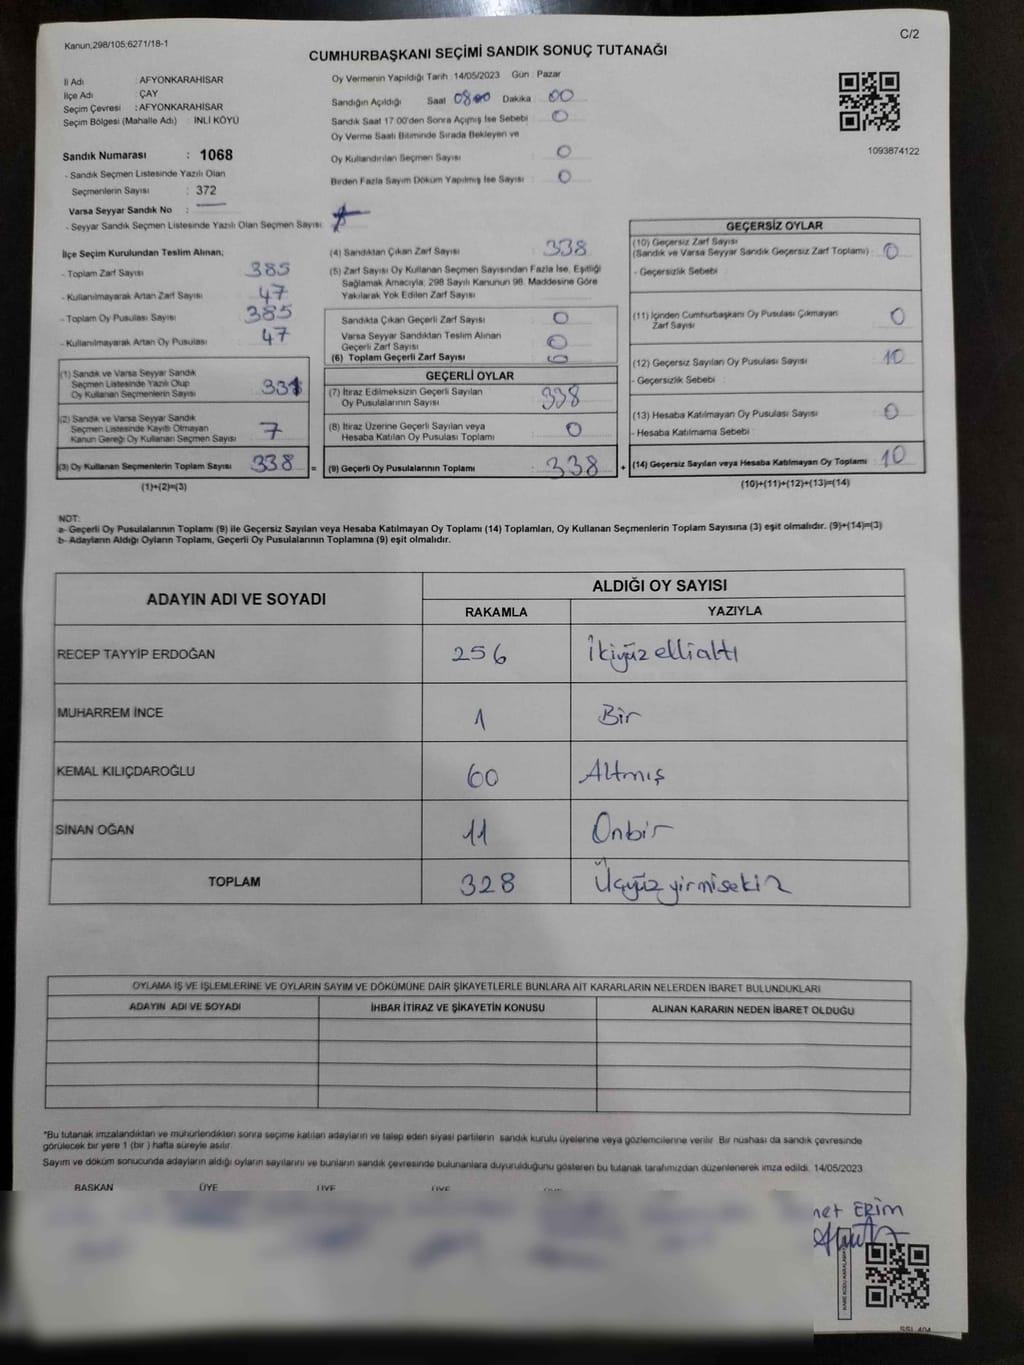 Kanun,298/105;6271/18-1
C/2
CUMHURBAŞKANI SEÇİMİ SANDIK SONUÇ TUTANAĞI
İl Adı : AFYONKARAHİSAR
İlçe Adı : ÇAY
Seçim Çevresi : AFYONKARAHİSAR
Seçim Bölgesi (Mahalle Adı) : İNLİ KÖYÜ
Sandık Numarası : 1068
- Sandık Seçmen Listesinde Yazılı Olan
Seçmenlerin Sayısı : 372
Varsa Seyyar Sandık No :
- Seyyar Sandık Seçmen Listesinde Yazılı Olan Seçmen Sayısı :
Oy Vermenin Yapıldığı Tarih : 14/05/2023 Gün : Pazar
Sandığın Açıldığı Saat 0800 Dakika : 00
Sandık Saat 17:00'den Sonra Açmış İse Sebebi : 0
Oy Verme Saati Bitiminde Sırada Bekleyen ve
Oy Kullandırılan Seçmen Sayısı : 0
Birden Fazla Sayım Döküm Yapılmış İse Sayısı : 0
1093874122
İlçe Seçim Kurulundan Teslim Alınan;
- Toplam Zarf Sayısı : 385
- Kullanılmayarak Artan Zarf Sayısı : 47
- Toplam Oy Pusulası Sayısı : 385
- Kullanılmayarak Artan Oy Pusulası : 47
(1) Sandık ve Varsa Seyyar Sandık
Seçmen Listesinde Yazılı Olup
Oy Kullanan Seçmenlerin Sayısı : 331
(2) Sandık ve Varsa Seyyar Sandık
Seçmen Listesinde Kayıtlı Olmayan
Kanun Gereği Oy Kullanan Seçmen Sayısı : 7
(3) Oy Kullanan Seçmenlerin Toplam Sayısı : 338 =
(1)+(2)=(3)
(4) Sandıktan Çıkan Zarf Sayısı : 338
(5) Zarf Sayısı Oy Kullanan Seçmen Sayısından Fazla İse, Eşitliği
Sağlamak Amacıyla, 298 Sayılı Kanunun 98. Maddesine Göre
Yakılarak Yok Edilen Zarf Sayısı :
Sandıkta Çıkan Geçerli Zarf Sayısı : 0
Varsa Seyyar Sandıktan Teslim Alınan
Geçerli Zarf Sayısı : 0
(6) Toplam Geçerli Zarf Sayısı : 0
GEÇERLİ OYLAR
(7) İtiraz Edilmeksizin Geçerli Sayılan
Oy Pusulalarının Sayısı : 338
(8) İtiraz Üzerine Geçerli Sayılan veya
Hesaba Katılan Oy Pusulası Toplamı : 0
(9) Geçerli Oy Pusulalarının Toplamı : 338 +
GEÇERSİZ OYLAR
(10) Geçersiz Zarf Sayısı
(Sandık ve Varsa Seyyar Sandık Geçersiz Zarf Toplamı) : 0
- Geçersizlik Sebebi :
(11) İçinden Cumhurbaşkanı Oy Pusulası Çıkmayan
Zarf Sayısı : 0
(12) Geçersiz Sayılan Oy Pusulası Sayısı : 10
- Geçersizlik Sebebi :
(13) Hesaba Katılmayan Oy Pusulası Sayısı : 0
- Hesaba Katılmama Sebebi :
(14) Geçersiz Sayılan veya Hesaba Katılmayan Oy Toplamı : 10
(10)+(11)+(12)+(13)=(14)
NOT:
a- Geçerli Oy Pusulalarının Toplamı (9) ile Geçersiz Sayılan veya Hesaba Katılmayan Oy Toplamı (14) Toplamları, Oy Kullanan Seçmenlerin Toplam Sayısına (3) eşit olmalıdır. (9)+(14)=(3)
b- Adayların Aldığı Oyların Toplamı, Geçerli Oy Pusulalarının Toplamına (9) eşit olmalıdır.
ADAYIN ADI VE SOYADI
ALDIĞI OY SAYISI
RAKAMLA YAZIYLA
RECEP TAYYİP ERDOĞAN 256 İkiyüz ellialtı
MUHARREM İNCE 1 Bir
KEMAL KILIÇDAROĞLU 60 Altmış
SİNAN OĞAN 11 Onbir
TOPLAM 328 Üçyüz yirmisekiz
OYLAMA İŞ VE İŞLEMLERİNE VE OYLARIN SAYIM VE DÖKÜMÜNE DAİR ŞİKAYETLERLE BUNLARA AİT KARARLARIN NELERDEN İBARET BULUNDUKLARI
ADAYIN ADI VE SOYADI İHBAR İTİRAZ VE ŞİKAYETİN KONUSU ALINAN KARARIN NEDEN İBARET OLDUĞU
*Bu tutanak imzalandıktan ve mühürlendikten sonra seçime katılan adayların ve talep eden siyasi partilerin sandık kurulu üyelerine veya gözlemcilerine verilir. Bir nüshası da sandık çevresinde
görülecek bir yere 1 (bir ) hafta süreyle asılır.
Sayım ve döküm sonucunda adayların aldığı oyların sayılarını ve bunların sandık çevresinde bulunanlara duyurulduğunu gösteren bu tutanak tarafımızdan düzenlenerek imza edildi. 14/05/2023
BAŞKAN ÜYE ÜYE ÜYE
net ERİM